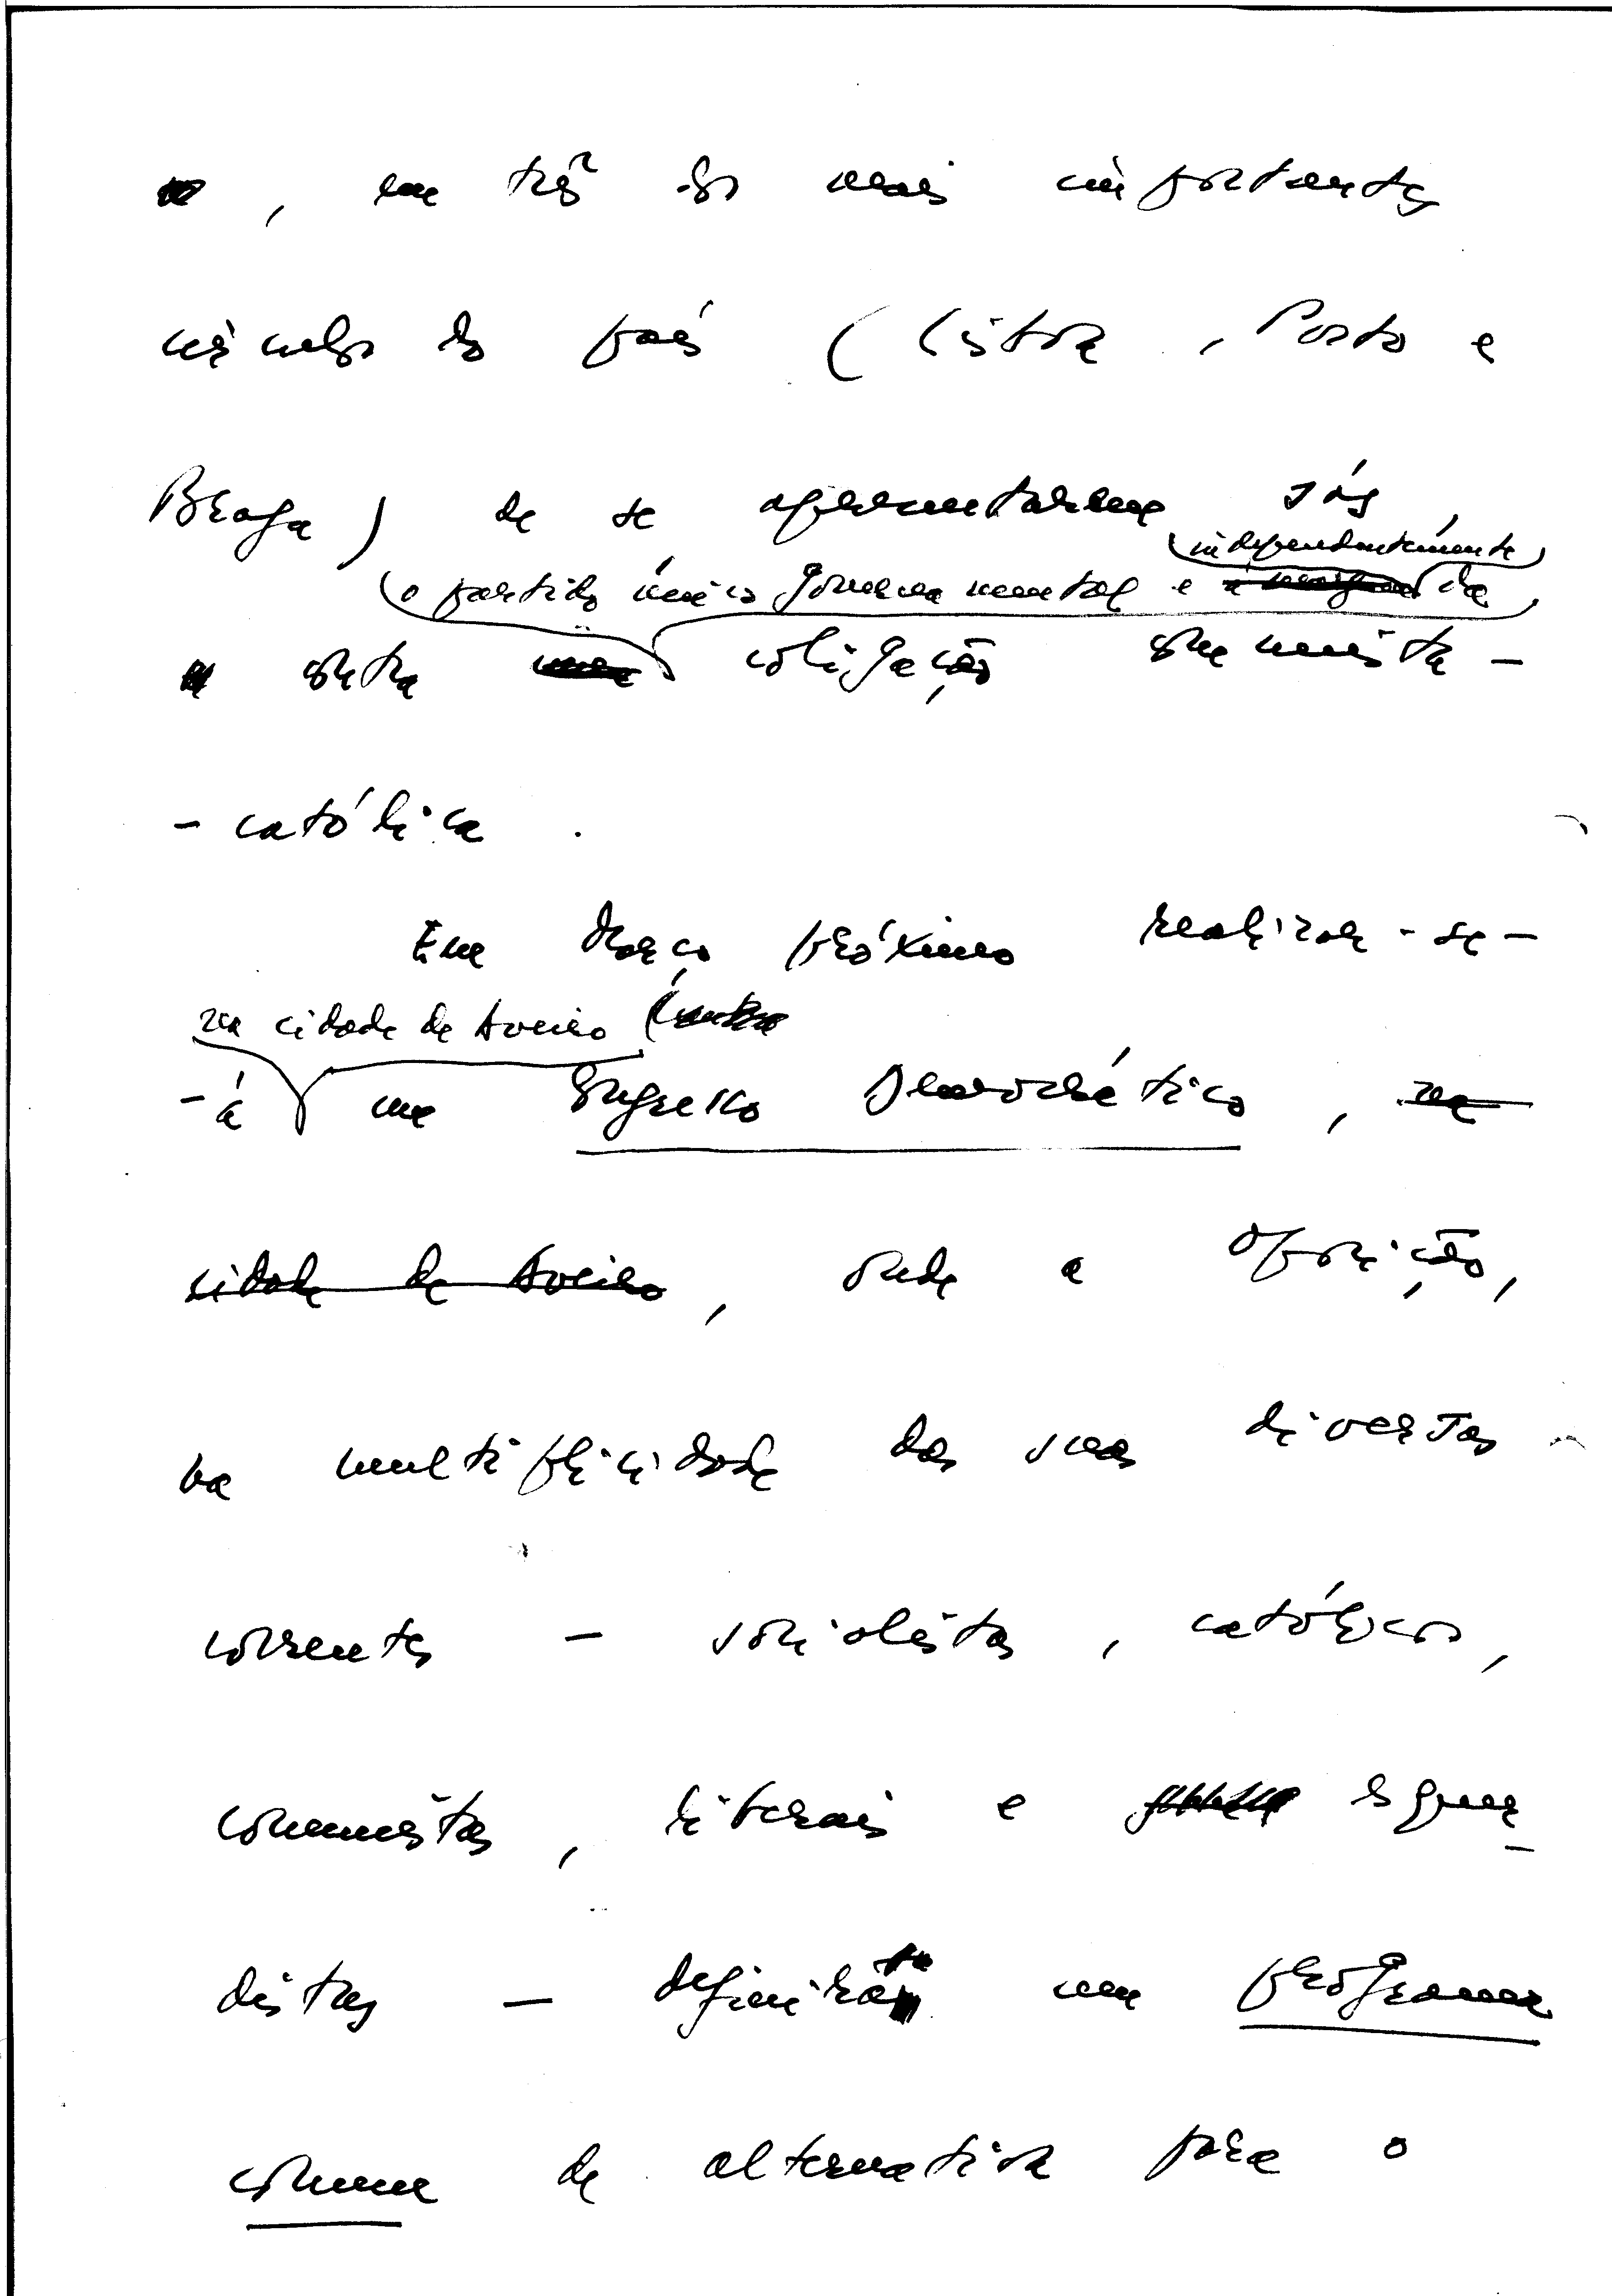 , em três dos mais importantes
círculos do país (Lisboa, Porto e
Braga) de se apresentarem sós,
independentemente
o partido único governamental e da
contra coligação comunista-
-católica.
Em Março próximo realizar-se-
na cidade de Aveiro
-á um Congresso Democrático, na
cidade de Aveiro, onde a oposição,
na multiplicidade das suas diversas
correntes — socialistas, católicos,
comunistas, liberais e esquer-
distas — definirá um programa
comum de alternativa para o